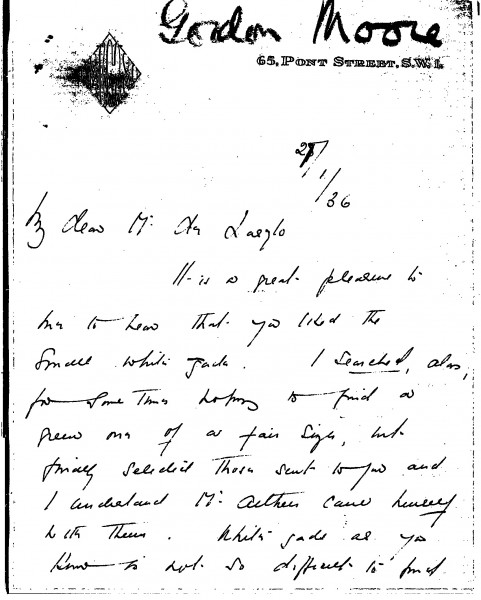 Gordon Moore
65, PONT STREET, S.W.1.
/1/36
My dear Mr de Laszlo
It is a great pleasure to
me to hear that you liked the
small white jade. I searched, also,
for some time hoping to find a
green one of a fair size, but
finally selected those sent to you and
I understand Mr came himself
with them. White jade as you
know is not so difficult to find.